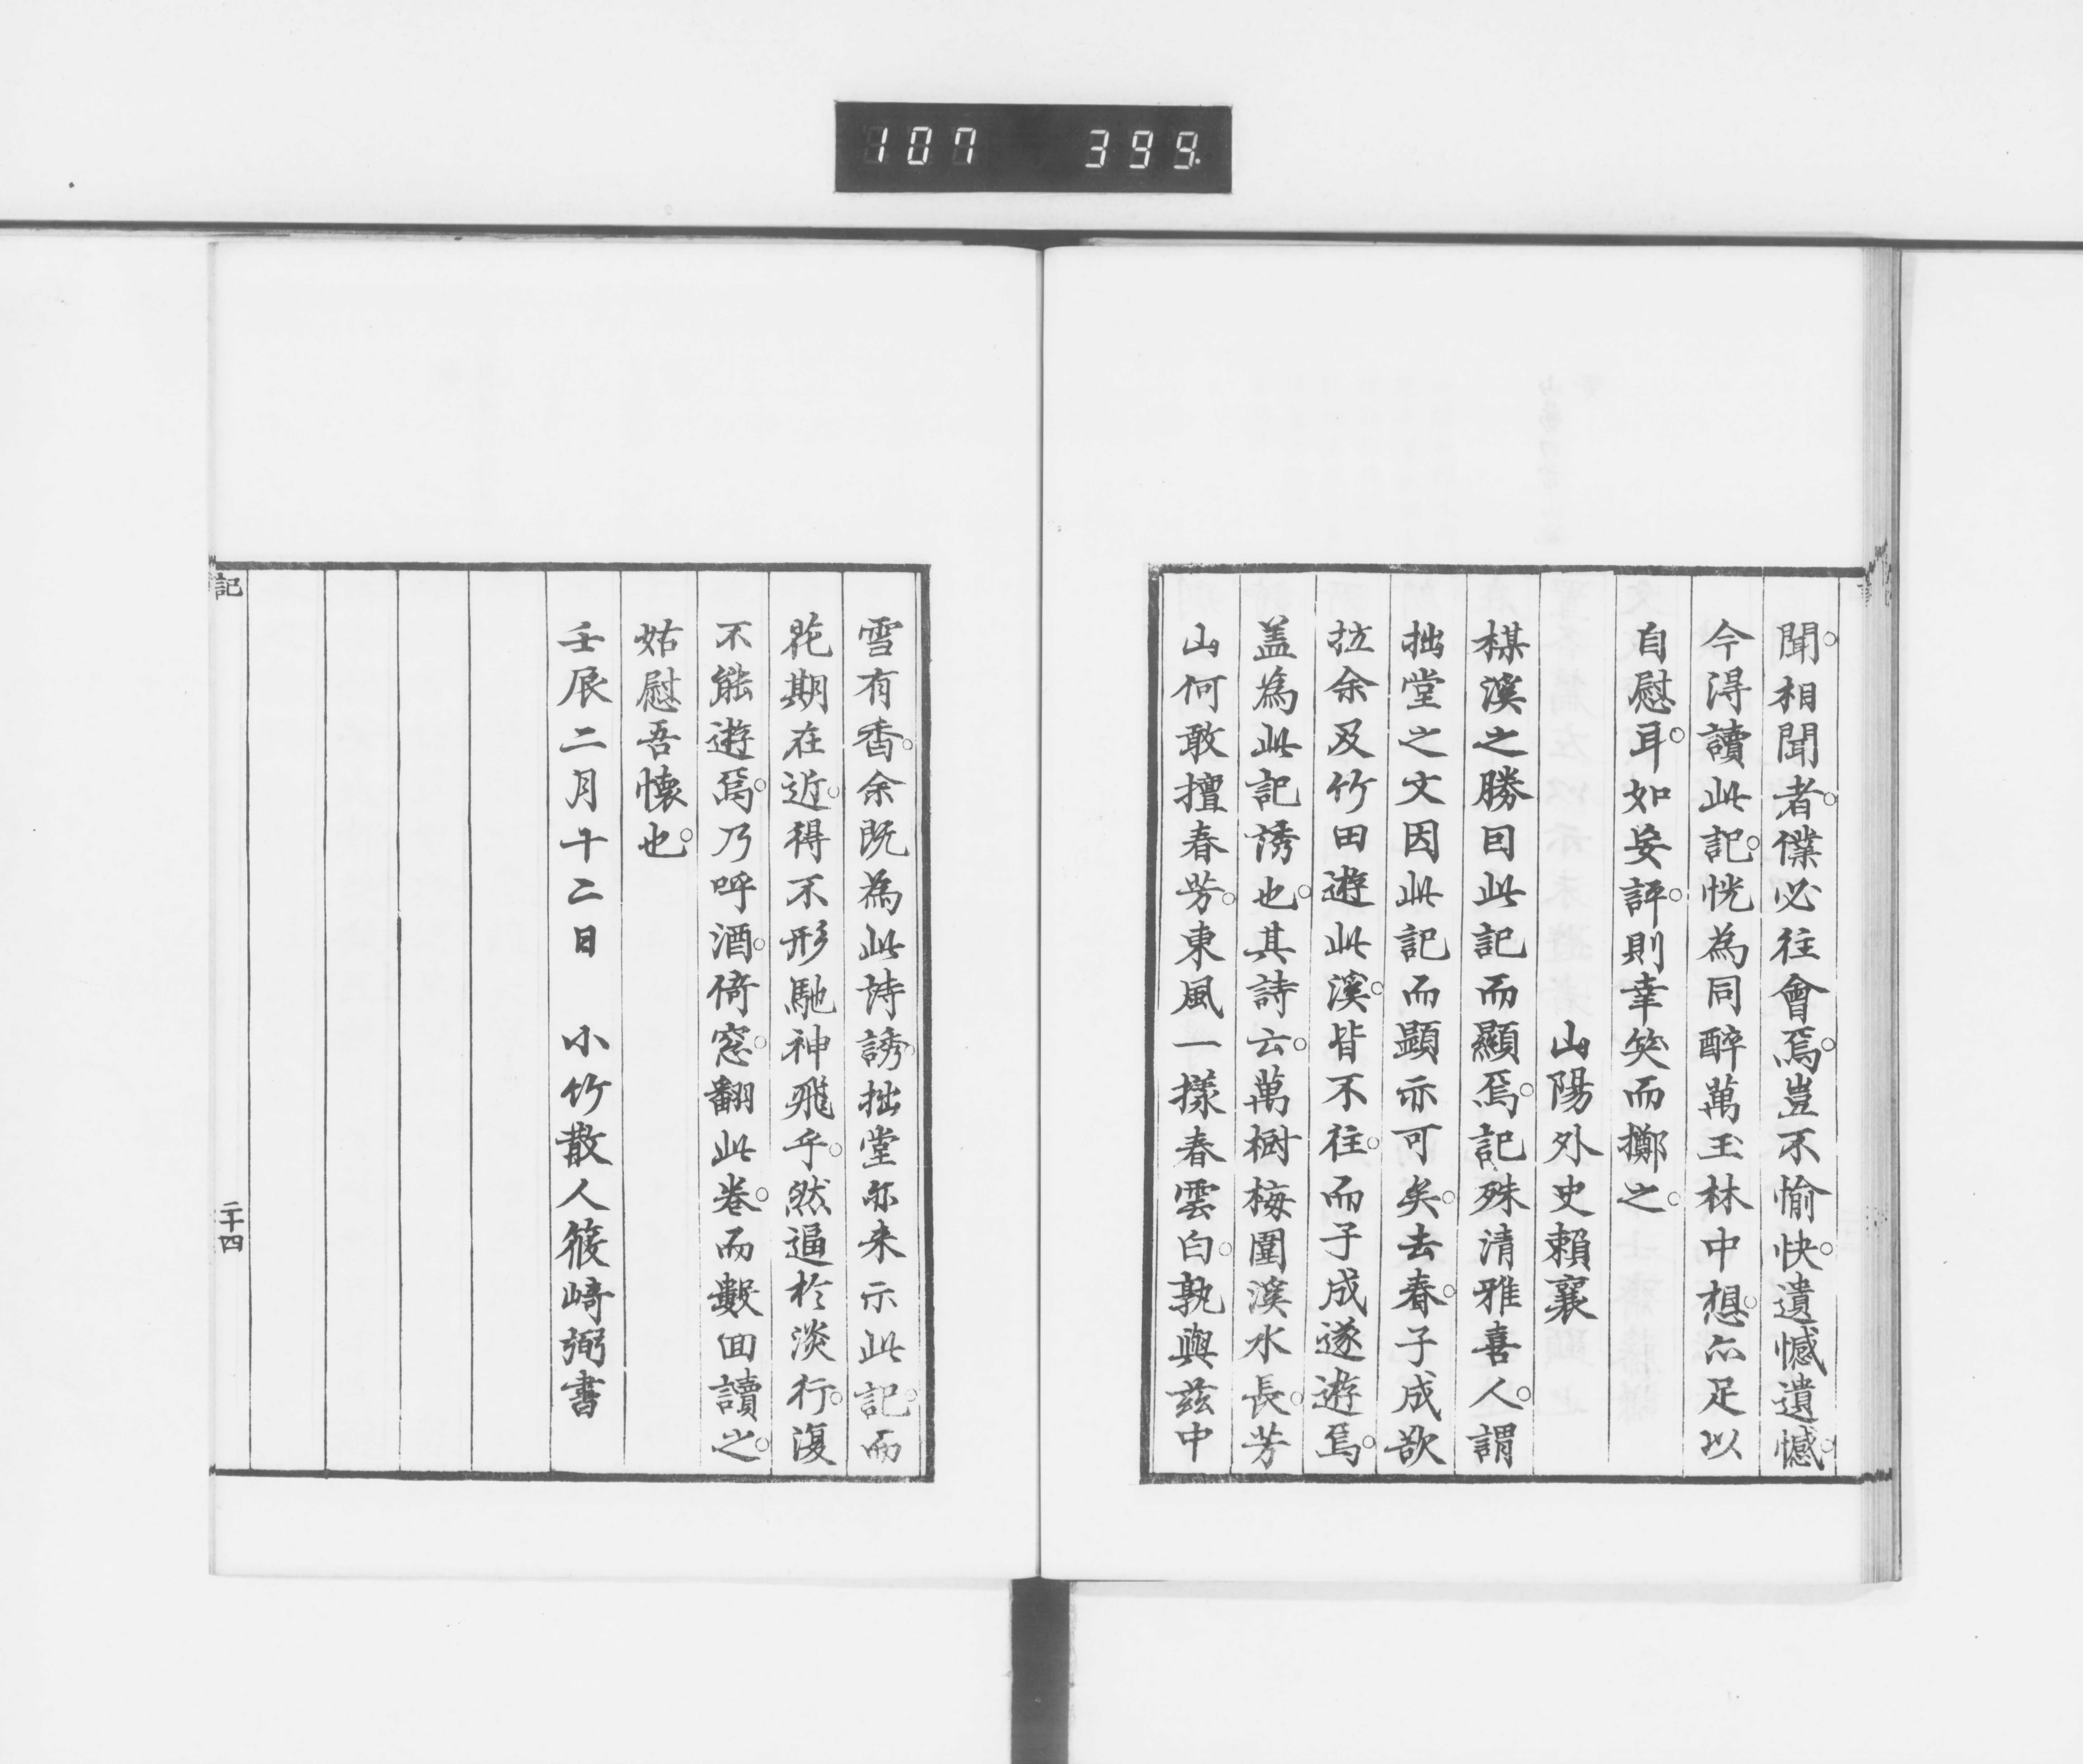 107 399.
聞。相聞者。僕必往會焉。豈不愉快。遺憾遺憾。
今得讀此記。恍為同醉萬玉林中想。亦足以
自慰耳。如妄評。則幸笑而擲之。
山陽外史賴襄
楳溪之勝因此記而顯焉。記殊清雅喜人。謂
拙堂之文因此記而顕亦可矣。去春。子成欲
拉余及竹田遊此溪。皆不往。而子成遂遊焉。
盖為此記誘也。其詩云。萬樹梅圍溪水長。芳
山何敢擅春芳。東風一様春雲白。孰與茲中
雪有香。余既為此詩誘。拙堂亦来示此記。而
花期在近。得不形馳神飛乎。然逼於淡行。復
不能遊焉。乃呼酒。倚窓。翻此卷。而數回讀之。
姑慰吾懐也。
壬辰二月十二日 小竹散人筱崎弼書
記
二十四